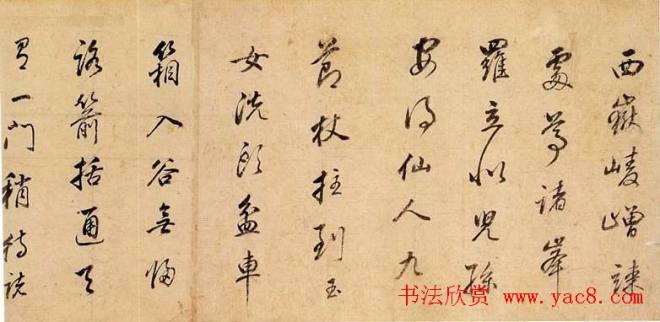 西嶽崚嶒竦
處尊諸峯
羅立似兒孫
安得仙人九
節杖拄到玉
女洗頭盆車
箱入谷無歸
路箭括通天
有一門稍待秋
书法欣赏：www.yac8.com